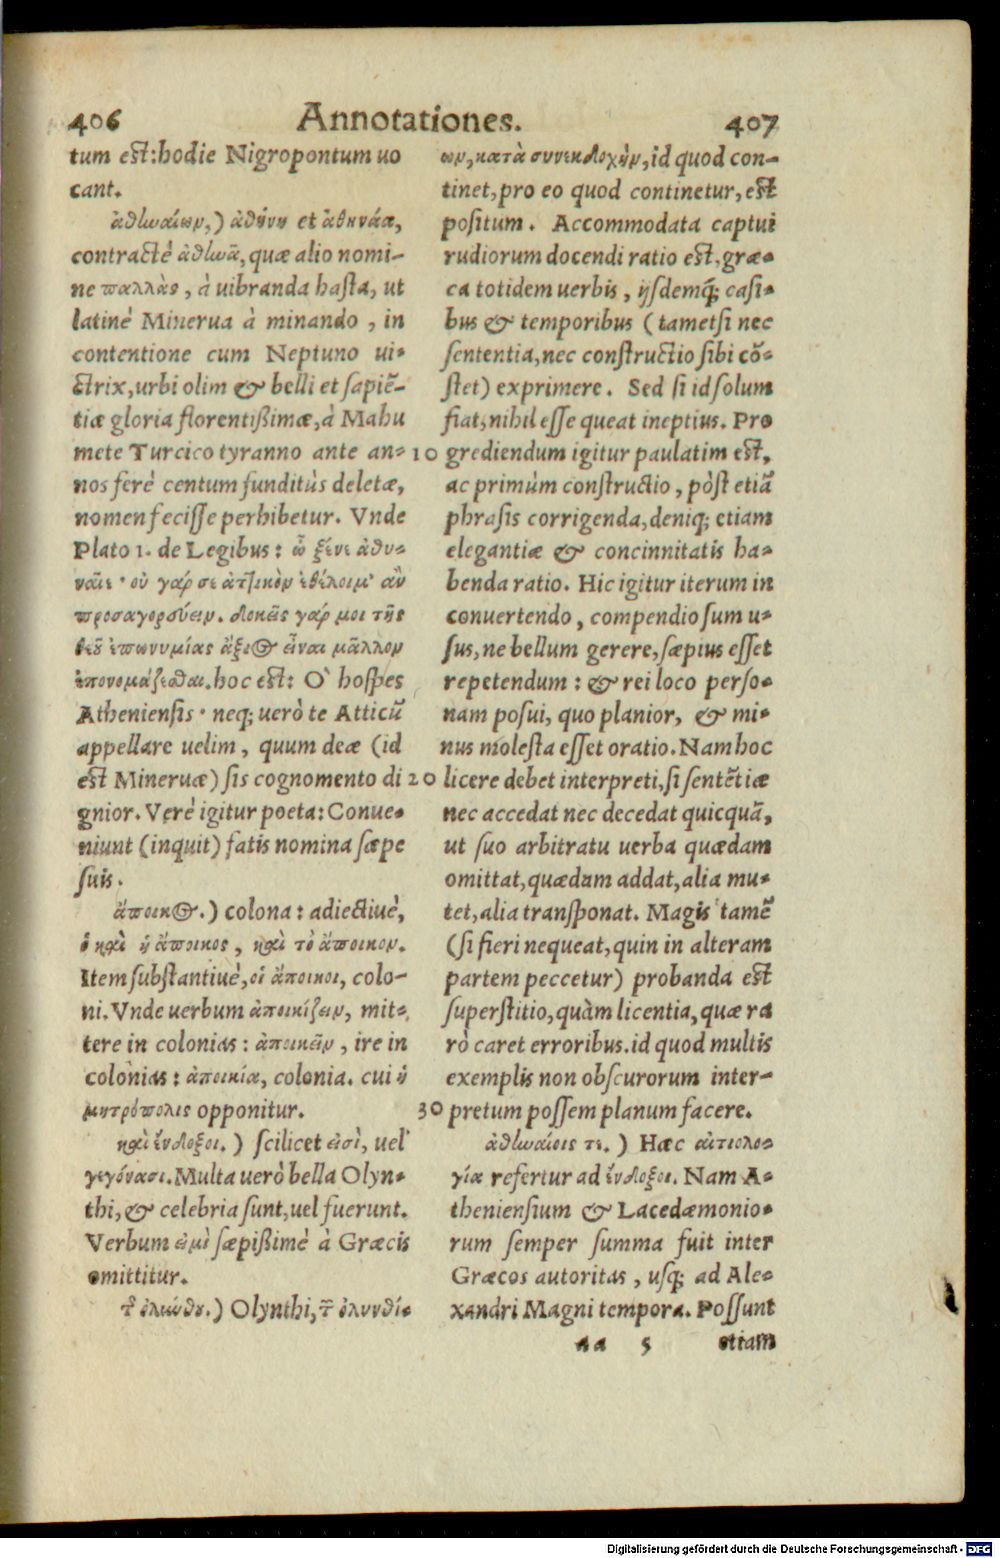 406 Annotationes. 407
tum est:hodie Nigropontum uo
cant.
ἀθηναίων,) ἀθήνη et ἀθηνάα,
contractè ἀθηνᾶ, quæ alio nomi-
ne παλλὰς, à uibranda hasta, ut
latinè Minerua à minando, in
contentione cum Neptuno ui-
ctrix, urbi olim & belli et sapiẽ-
tiæ gloria florentißimæ, à Mahu
mete Turcico tyranno ante an-
nos ferè centum funditùs deletæ,
nomen fecisse perhibetur. Vnde
Plato 1. de Legibus: ὦ ξένε ἀθη-
ναῖε· οὐ γάρ σε ἀττικὸν ἐθέλοιμ' ἂν
προσαγορεύειν. δοκεῖς γάρ μοι τῆς
θεοῦ ἐπωνυμίας ἄξιος εἶναι μᾶλλον
ἐπονομάζεσθαι. hoc est: O hospes
Atheniensis· neq; uerò te Atticũ
appellare uelim, quum deæ (id
est Mineruæ) sis cognomento di
gnior. Verè igitur poeta: Conue-
niunt (inquit) fatis nomina sæpe
suis.
ἄποικος.) colona: adiectiuè,
ὁ καὶ ἡ ἄποικος, καὶ τὸ ἄποικον.
Item substantiuè, οἱ ἄποικοι, colo-
ni. Vnde uerbum ἀποικίζειν, mit-
tere in colonias: ἀποικεῖν, ire in
colonias: ἀποικία, colonia. cui ἡ
μητρόπολις opponitur.
καὶ ἔνδοξοι.) scilicet εἰσὶ, uel
γεγόνασι. Multa uerò bella Olyn-
thi, & celebria sunt, uel fuerunt.
Verbum εἰμὶ sæpißimè à Græcis
omittitur.
τ̃ ὀλύνθου.) Olynthi, τ̃ ὀλυνθί-
ων, κατὰ συνεκδοχὴν, id quod con-
tinet, pro eo quod continetur, est
positum. Accommodata captui
rudiorum docendi ratio est, græ-
ca totidem uerbis, ijsdemq; casi-
bus & temporibus (tametsi nec
sententia, nec constructio sibi cõ-
stet) exprimere. Sed si id solum
fiat, nihil esse queat ineptius. Pro
10 grediendum igitur paulatim est,
ac primùm constructio, pòst etiã
phrasis corrigenda, deniq; etiam
elegantiæ & concinnitatis ha-
benda ratio. Hic igitur iterum in
conuertendo, compendio sum u-
sus, ne bellum gerere, sæpius esset
repetendum: & rei loco perso-
nam posui, quo planior, & mi-
nus molesta esset oratio. Nam hoc
20 licere debet interpreti, si sentẽtiæ
nec accedat nec decedat quicquã,
ut suo arbitratu uerba quædam
omittat, quædam addat, alia mu-
tet, alia transponat. Magis tamẽ
(si fieri nequeat, quin in alteram
partem peccetur) probanda est
superstitio, quàm licentia, quæ ra
rò caret erroribus. id quod multis
exemplis non obscurorum inter-
30 pretum possem planum facere.
ἀθηναίοις τε.) Hæc αἰτιολο-
γία refertur ad ἔνδοξοι. Nam A-
theniensium & Lacedæmonio-
rum semper summa fuit inter
Græcos autoritas, usq; ad Ale-
xandri Magni tempora. Possunt
aa 5 etiam
Digitalisierung gefördert durch die Deutsche Forschungsgemeinschaft - DFG